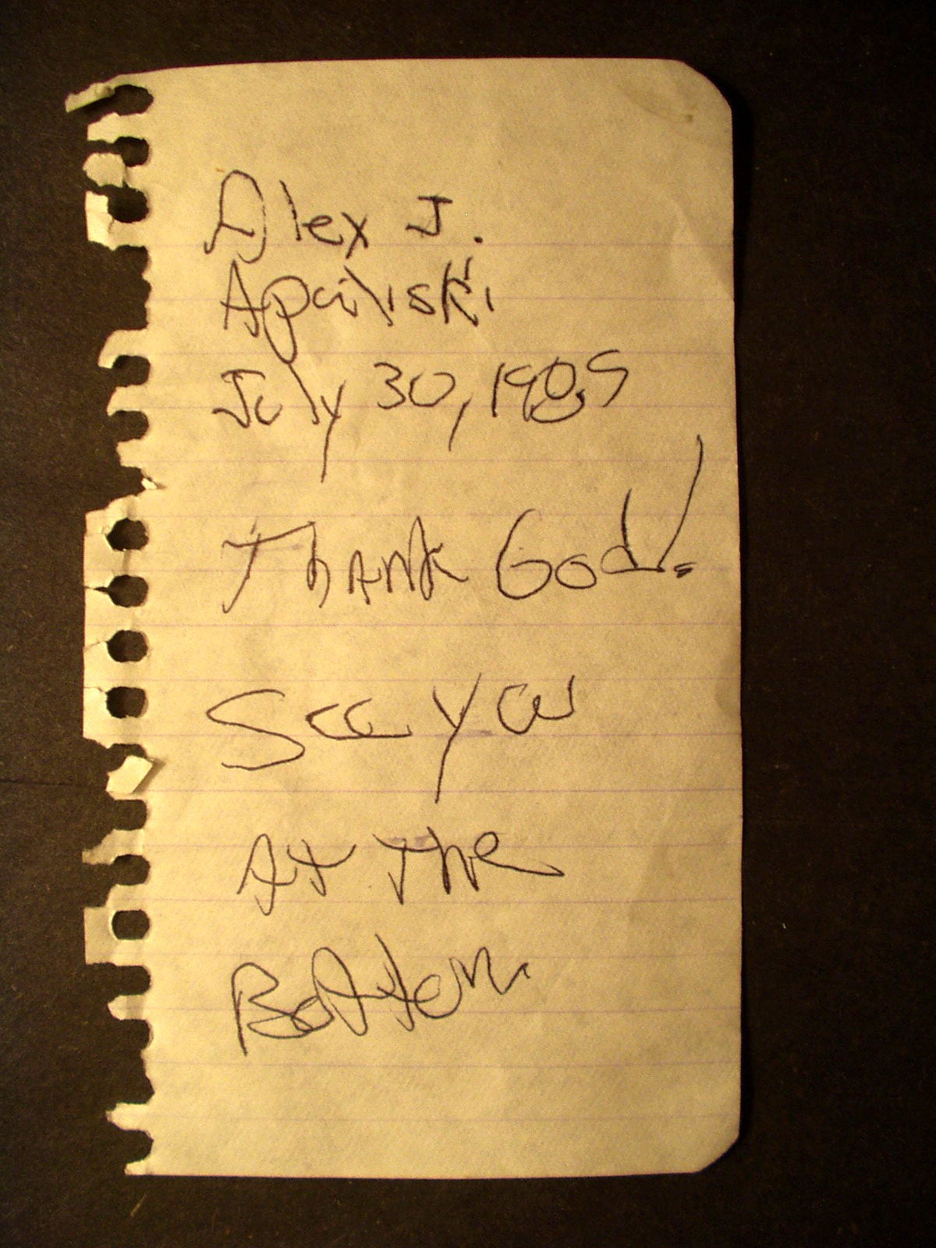 Alex J.
Apaliski
July 30, 1989
Thank God!
See you
At The
Bottom